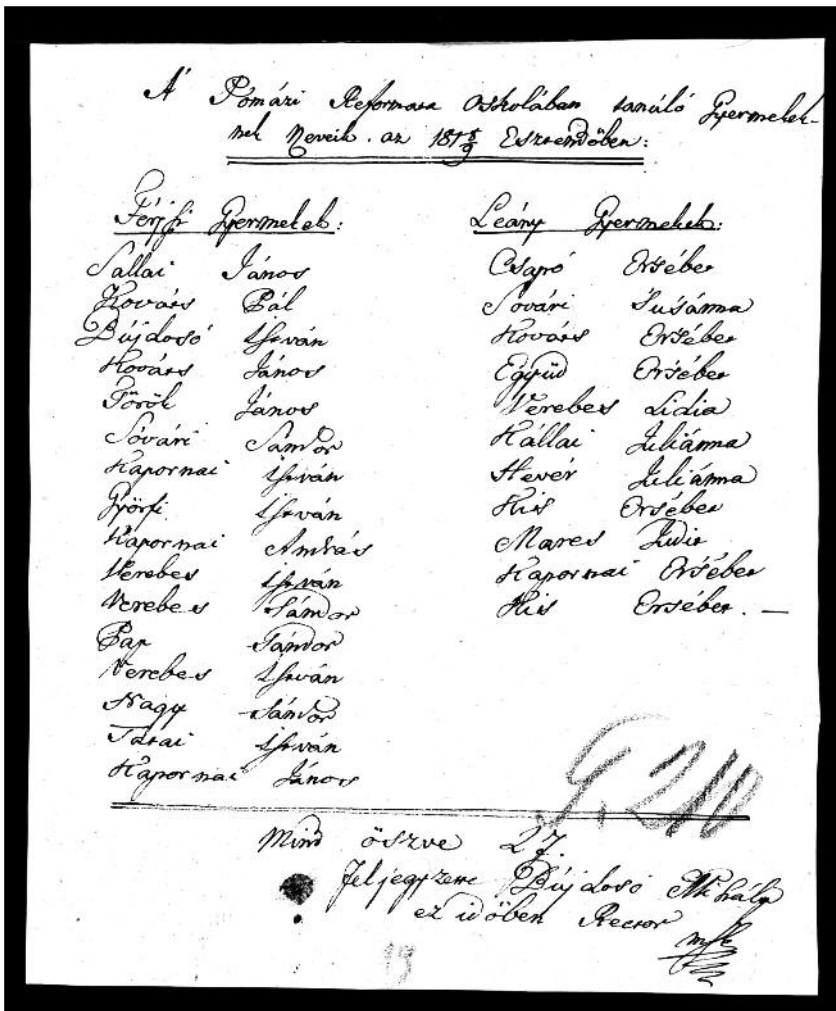 A' Pómázi Reformata Oskolában tanúló Gyermekek-
nek Neveik. az 181 8/9 Esztendőben:
Férjfi Gyermekek:
Sallai János
Kováts Pál
Bújdosó István
Kováts János
Török János
Sóvári Sándor
Kapornai István
Györfi István
Kápornai András
Verebes István
Verebes Sándor
Pap Sándor
Verebes István
Nagy Sándor
Tatai István
Kapornai János
Leány Gyermekek:
Csapó Ersébet
Sóvári Susánna
Kováts Ersébet
Együd Ersébet
Verebes Lidia
Kállai Juliánna
Hevér Juliánna
Kis Ersébet
Mares Judit
Kapornai Ersébet
Kis Ersébet. —
Mind öszve 27.
Feljegyzette Bújdosó Mihály
ez időben Rector
mpk
19